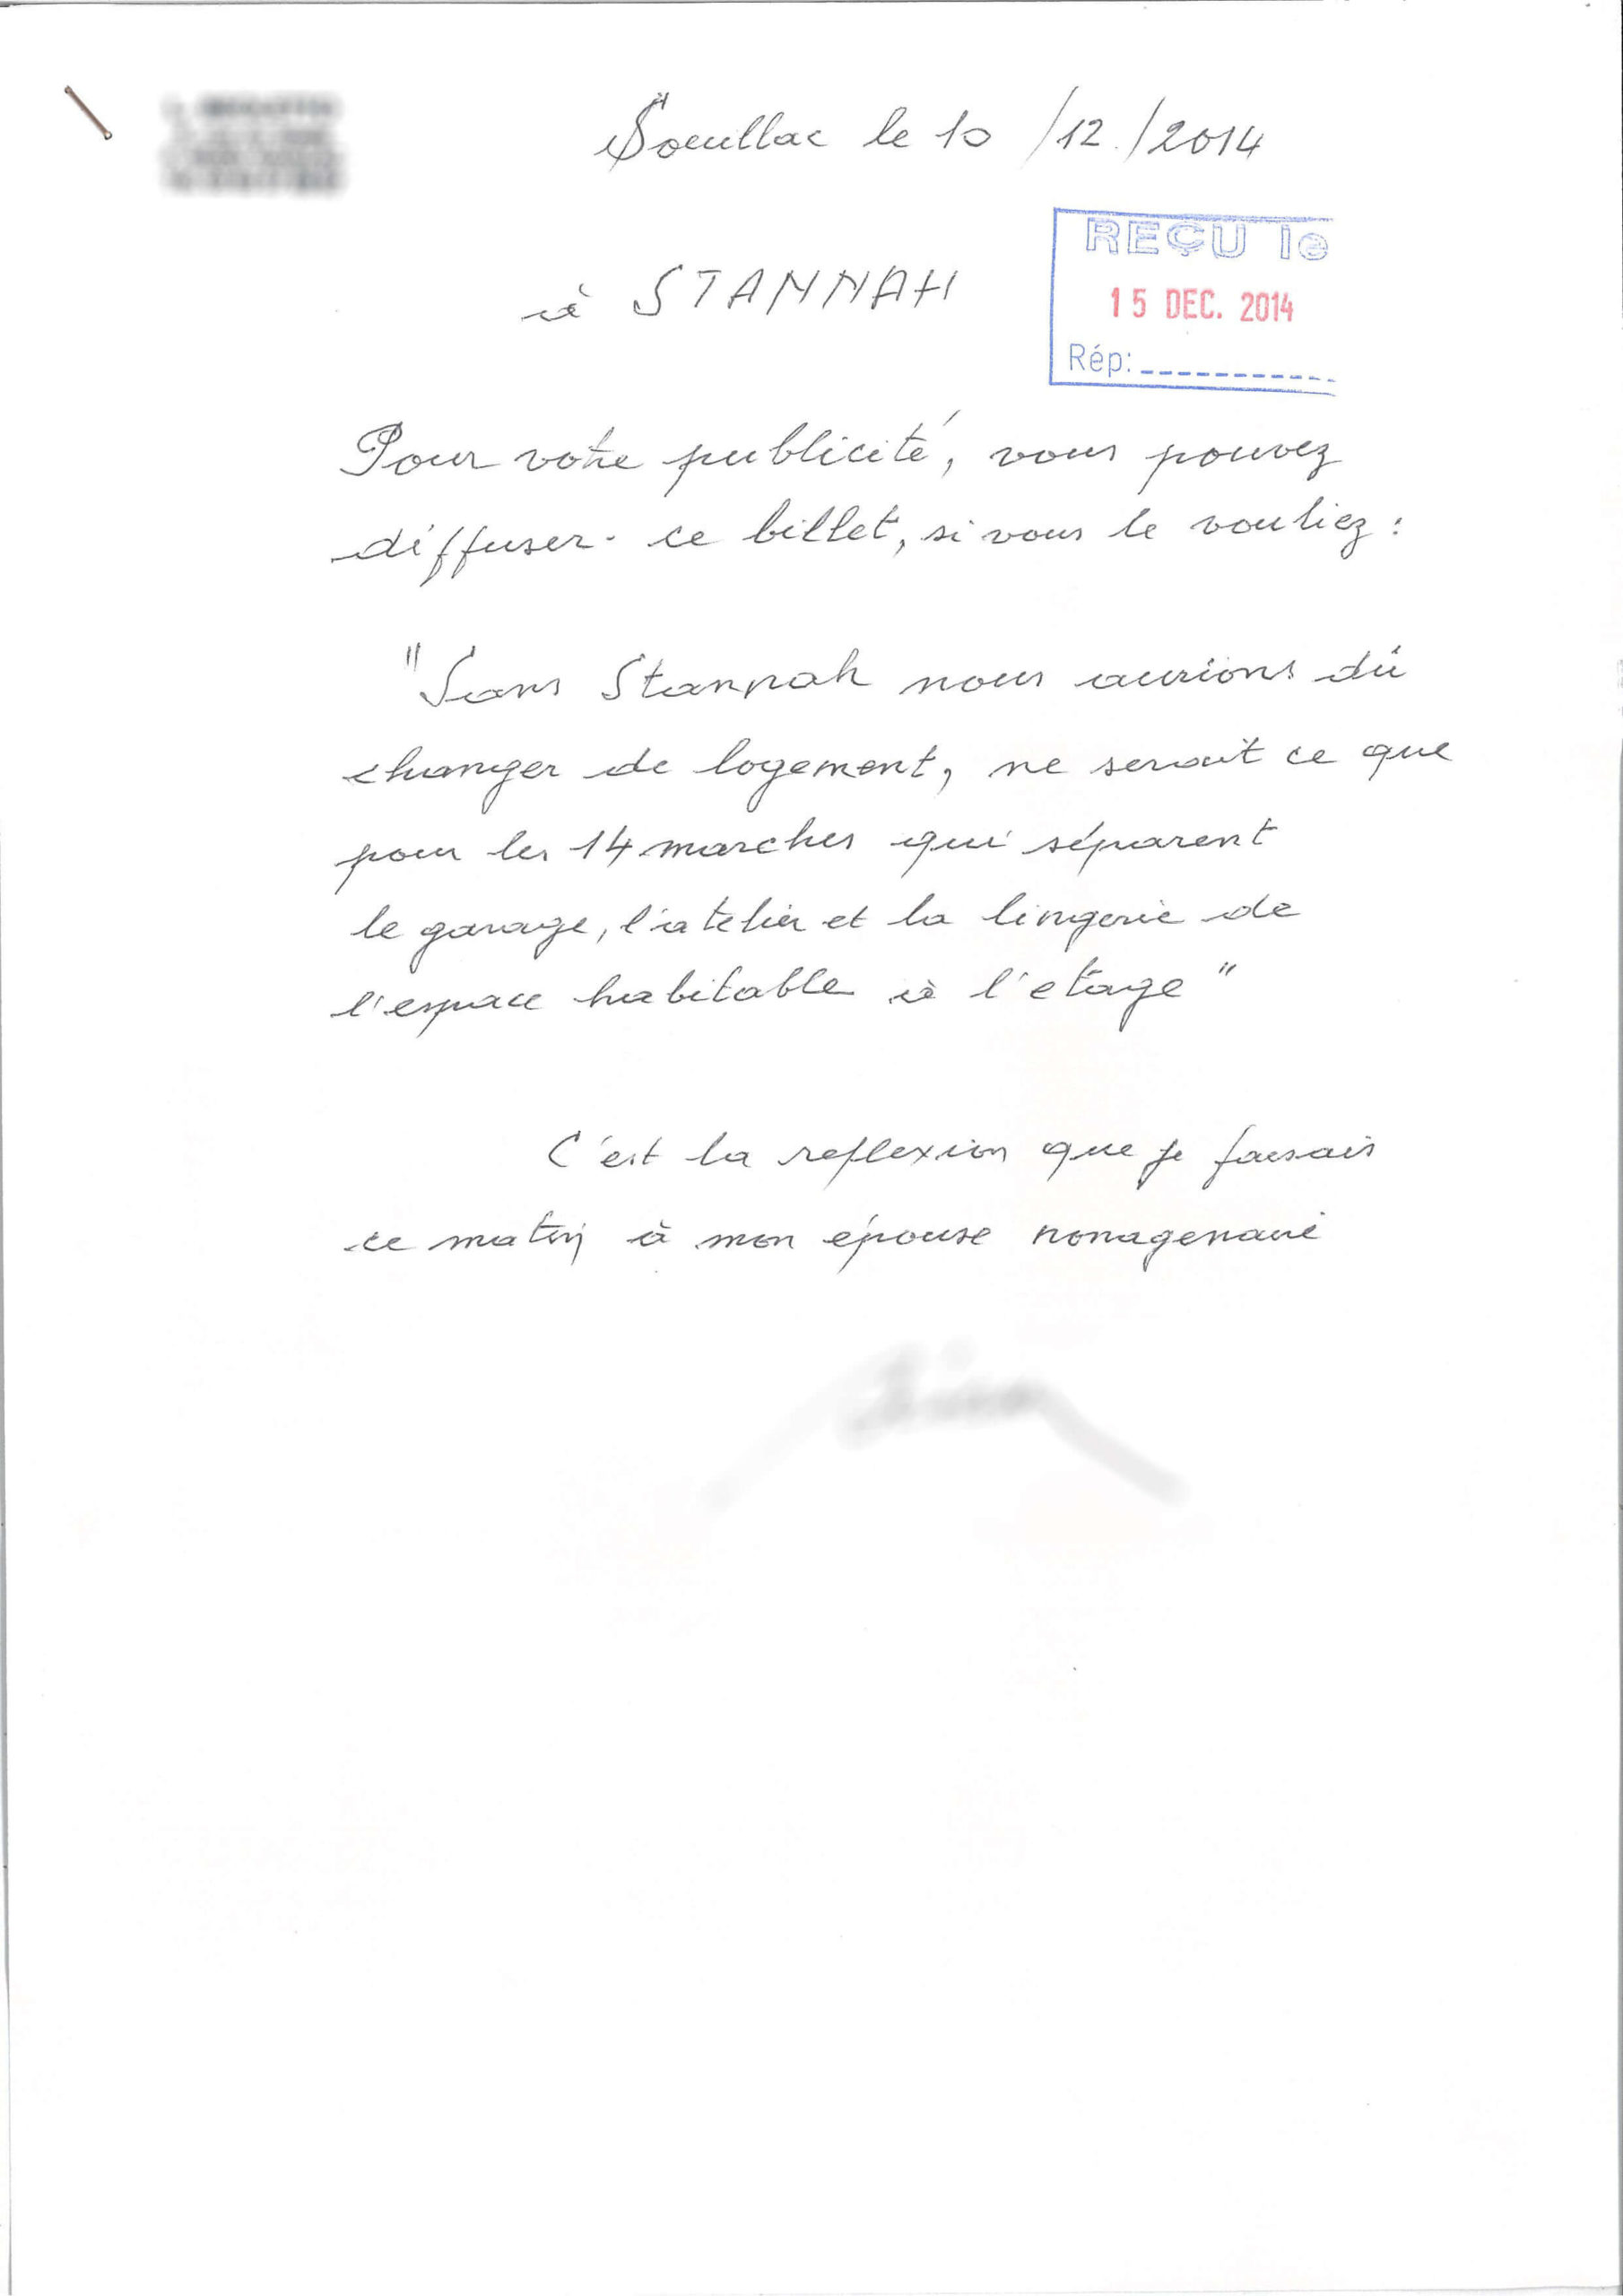 Souillac le 10/12/2014
REÇU le
15 DEC. 2014
Rép:
à STANNAH
Pour votre publicité, vous pouvez
diffuser ce billet, si vous le vouliez :
"Sans Stannah nous aurions dû
changer de logement, ne serait ce que
pour les 14 marches qui séparent
le garage, l'atelier et la lingerie de
l'espace habitable à l'etage"
C'est la reflexion que je faisais
ce matin à mon épouse nonagenaire